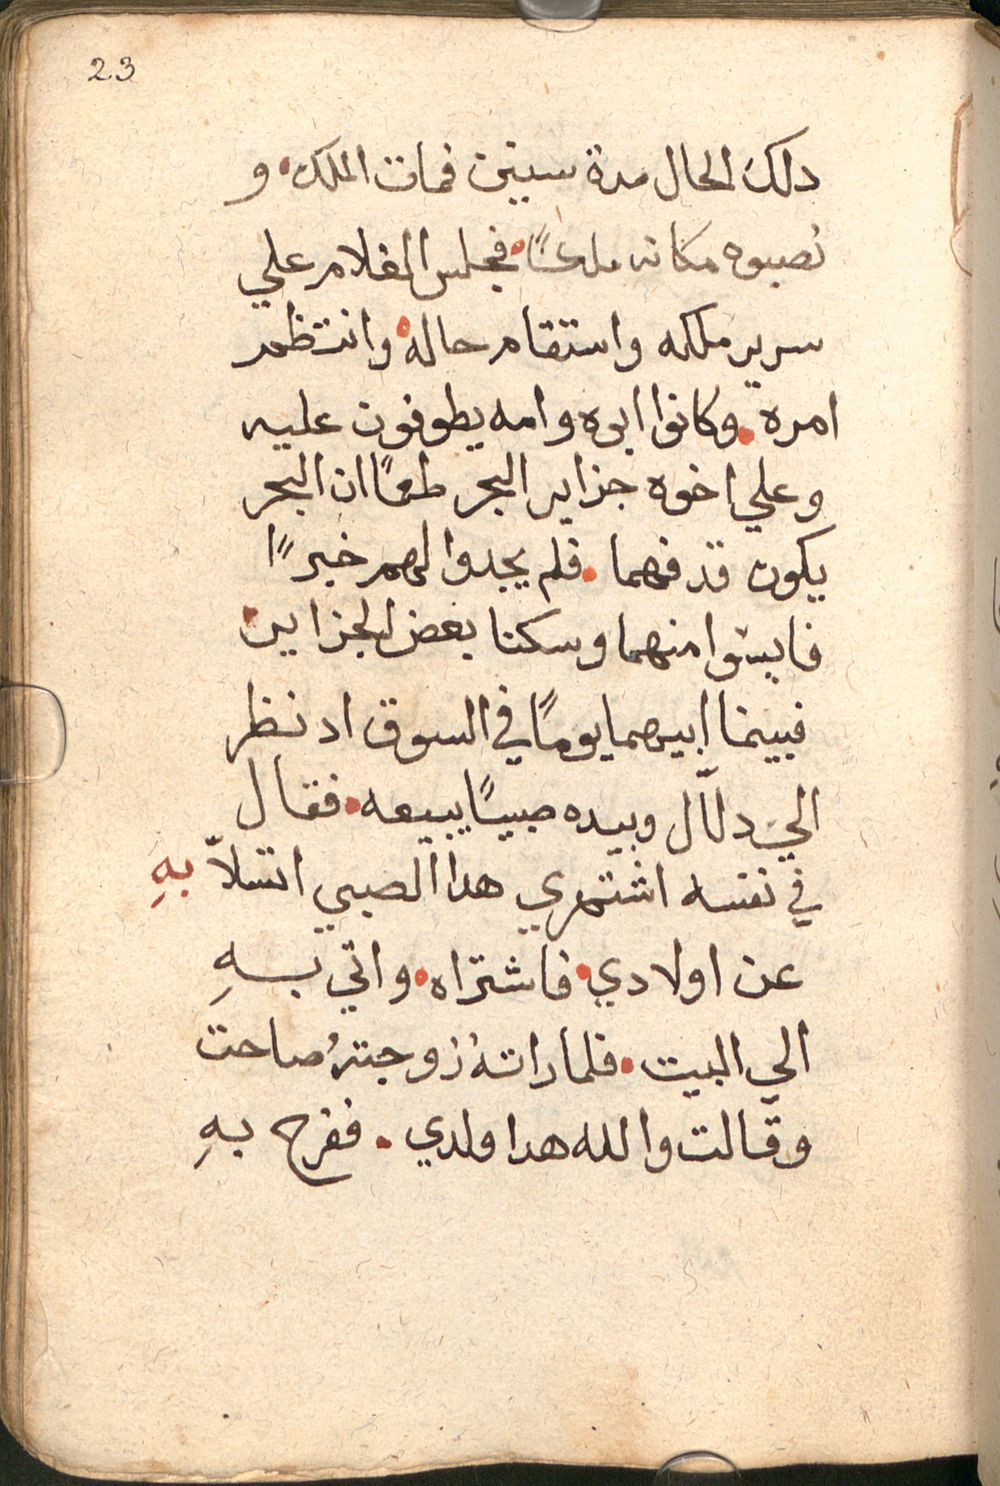 23
دلك الحال مدة سنين فمات الملك، و
نصبوه مكانه ملكًا، فجلس الغلام علي
سرير ملكه واستقام حاله، وانتظم
امره، وكانوا ابوه وامه يطوفون عليه
وعلي اخوه جزاير البحر طمعًا ان البحر
يكون قدفهما، فلم يجدوا لهم خبرًا
فايسوا منهما وسكنا بعض الجزاير،
فبينما ابيهما يومًا في السوق اد نظر
الي دلّال وبيده صبيًا يبيعه، فقال
في نفسه اشتهري هدا الصبي اتسلّا بهِ
عن اولادي، فاشتراه، واتي بهِ
الي البيت، فلما راتهُ زوجتهُ صاحت
وقالت والله هدا ولدي، ففرح بهِ